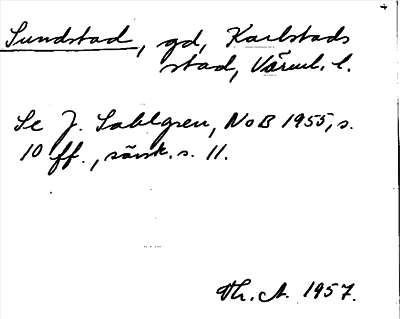 Sundstad, gd, Karlstads
stad, Värml. l.
Se J. Sahlgren, NoB 1955, s.
10 ff., särsk. s. 11.
Th. A. 1957.